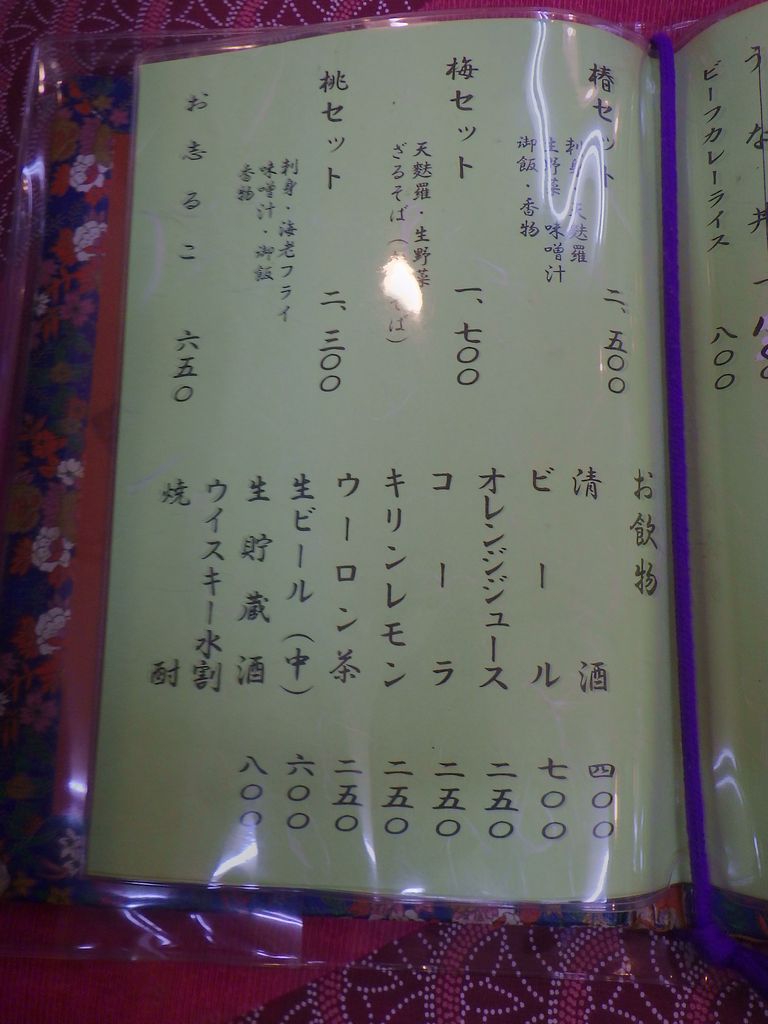 うな丼
ビーフカレーライス 八〇〇
椿セット 二、五〇〇
刺身・天麩羅
生野菜 味噌汁
御飯・香物
梅セット 一、七〇〇
天麩羅・生野菜
ざるそば（ そば）
桃セット 二、三〇〇
刺身・海老フライ
味噌汁・御飯
香物
おしるこ 六五〇
お飲物
清酒 四〇〇
ビール 七〇〇
オレンジジュース 二五〇
コーラ 二五〇
キリンレモン 二五〇
ウーロン茶 二五〇
生ビール（中） 六〇〇
生貯蔵酒 八〇〇
ウイスキー水割
焼酎